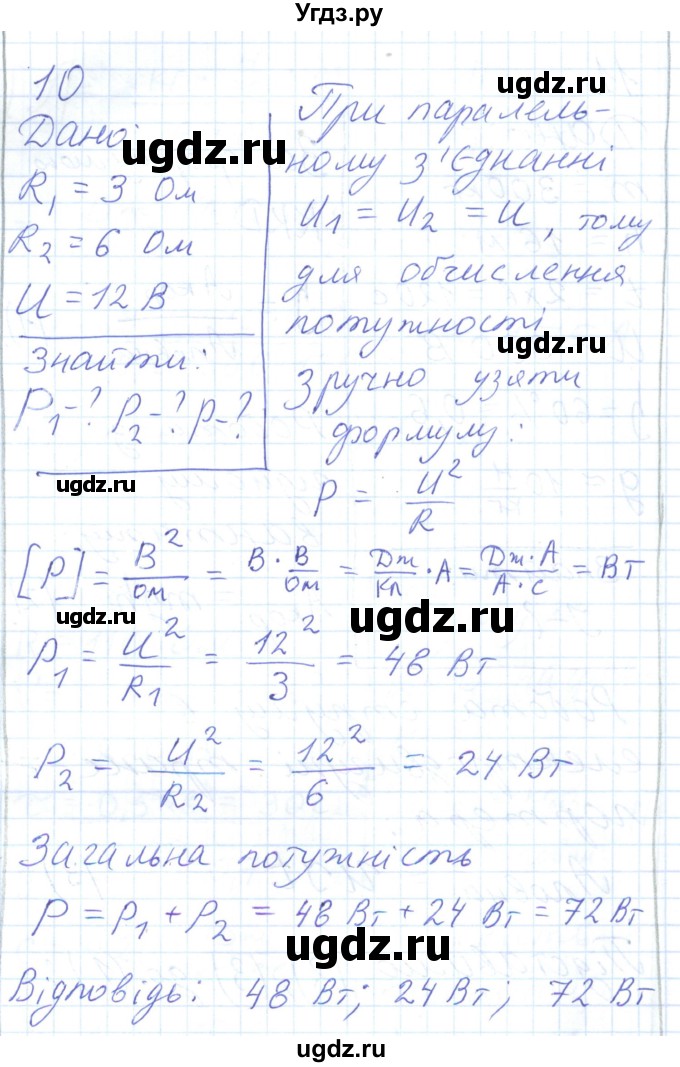 Угдз.ру
ugdz.ru
10
Дано:
ugdz.ru
R₁ = 3 Ом
R₂ = 6 Ом
U = 12 В
Знайти:
P₁-? P₂-? P-?
ugdz.ru
При паралель-
ному з'єднанні
U₁ = U₂ = U, тому
для обчислення
потужності
ugdz.ru
зручно узяти
формулу:
P = U²/R
[P] = В²/Ом = В · В/Ом = Дж/Кл · А = Дж·А/А·с = Вт
ugdz.ru
ugdz.ru
P₁ = U²/R₁ = 12²/3 = 48 Вт
P₂ = U²/R₂ = 12²/6 = 24 Вт
Загальна потужність
P = P₁ + P₂ = 48 Вт + 24 Вт = 72 Вт
ugdz.ru
Відповідь: 48 Вт; 24 Вт; 72 Вт
ugdz.ru